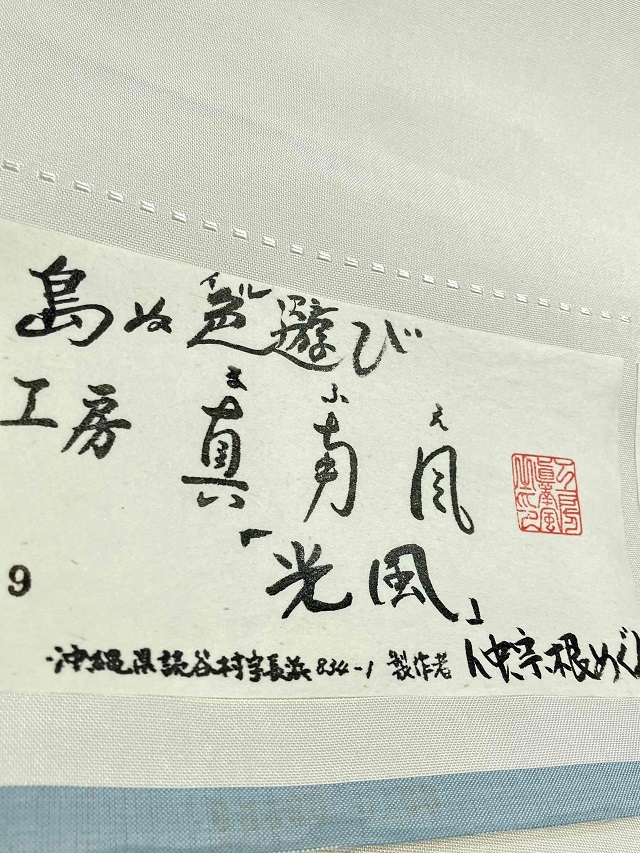 イル
島ぬ色遊び
ま ふ え
工房 真南風
「光風」
9
沖縄県読谷村字長浜834-1 製作者 仲宗根めぐ